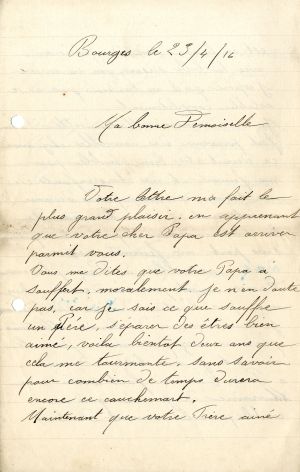 Bourges le 23/4/16
Ma bonne Demoiselle
Votre lettre ma fait le
plus grand plaisir. en apprenant
que votre cher Papa est arriver
parmit vous.
Vous me dites que votre Papa a
souffert, moralement je n'en doute
pas, car je sais ce que souffre
un Père, séparer des êtres bien
aimé, voila bientot deux ans que
cela me tourmente. sans savoir
pour combien de temps durera
encore ce cauchemart.
Maintenant que votre Père aimé